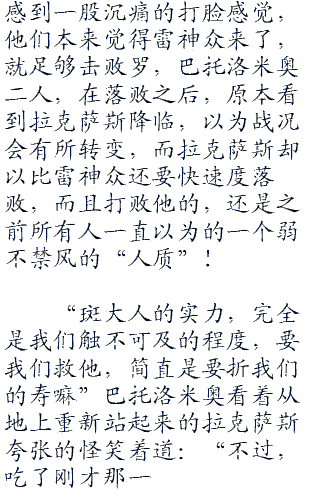 感到一股沉痛的打脸感觉，
他们本来觉得雷神众来了，
就足够击败罗，巴托洛米奥
二人，在落败之后，原本看
到拉克萨斯降临，以为战况
会有所转变，而拉克萨斯却
以比雷神众还要快速度落
败，而且打败他的，还是之
前所有人一直以为的一个弱
不禁风的“人质”！
“斑大人的实力，完全
是我们触不可及的程度，要
我们救他，简直是要折我们
的寿嘛”巴托洛米奥看着从
地上重新站起来的拉克萨斯
夸张的怪笑着道：“不过，
吃了刚才那一